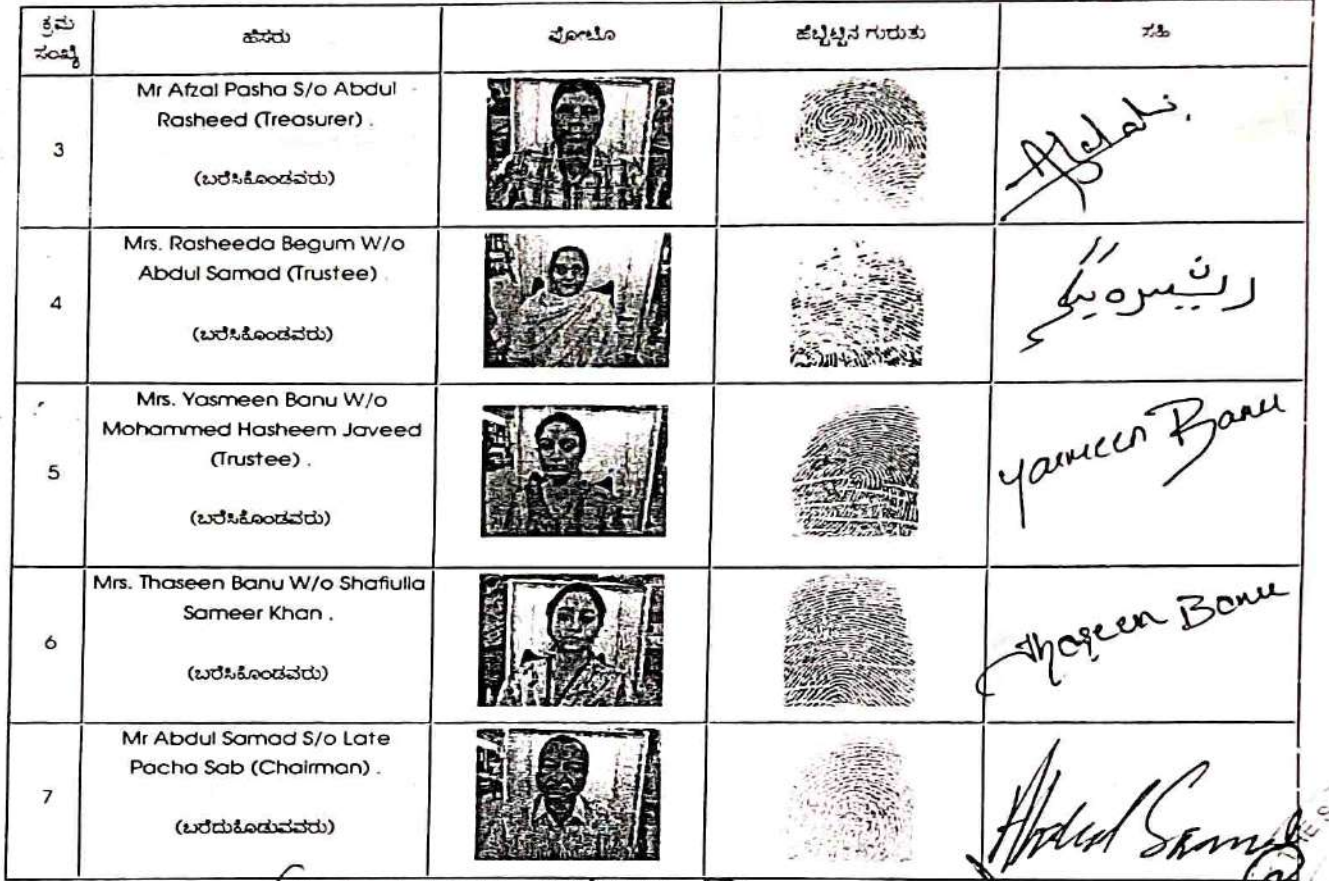 ಕ್ರಮ ಸಂಖ್ಯೆ ಹೆಸರು ಫೋಟೊ ಹೆಬ್ಬೆಟ್ಟಿನ ಗುರುತು ಸಹಿ
3
Mr Afzal Pasha S/o Abdul
Rasheed (Treasurer) .
(ಬರೆಸಿಕೊಂಡವರು)
4
Mrs. Rasheeda Begum W/o
Abdul Samad (Trustee) .
(ಬರೆಸಿಕೊಂಡವರು)
رشیدہ بیگم
5
Mrs. Yasmeen Banu W/o
Mohammed Hasheem Javeed
(Trustee) .
(ಬರೆಸಿಕೊಂಡವರು)
Yasmeen Banu
6
Mrs. Thaseen Banu W/o Shafiulla
Sameer Khan .
(ಬರೆಸಿಕೊಂಡವರು)
Thaseen Banu
7
Mr Abdul Samad S/o Late
Pacha Sab (Chairman) .
(ಬರೆದುಕೊಡುವವರು)
Abdul Samad